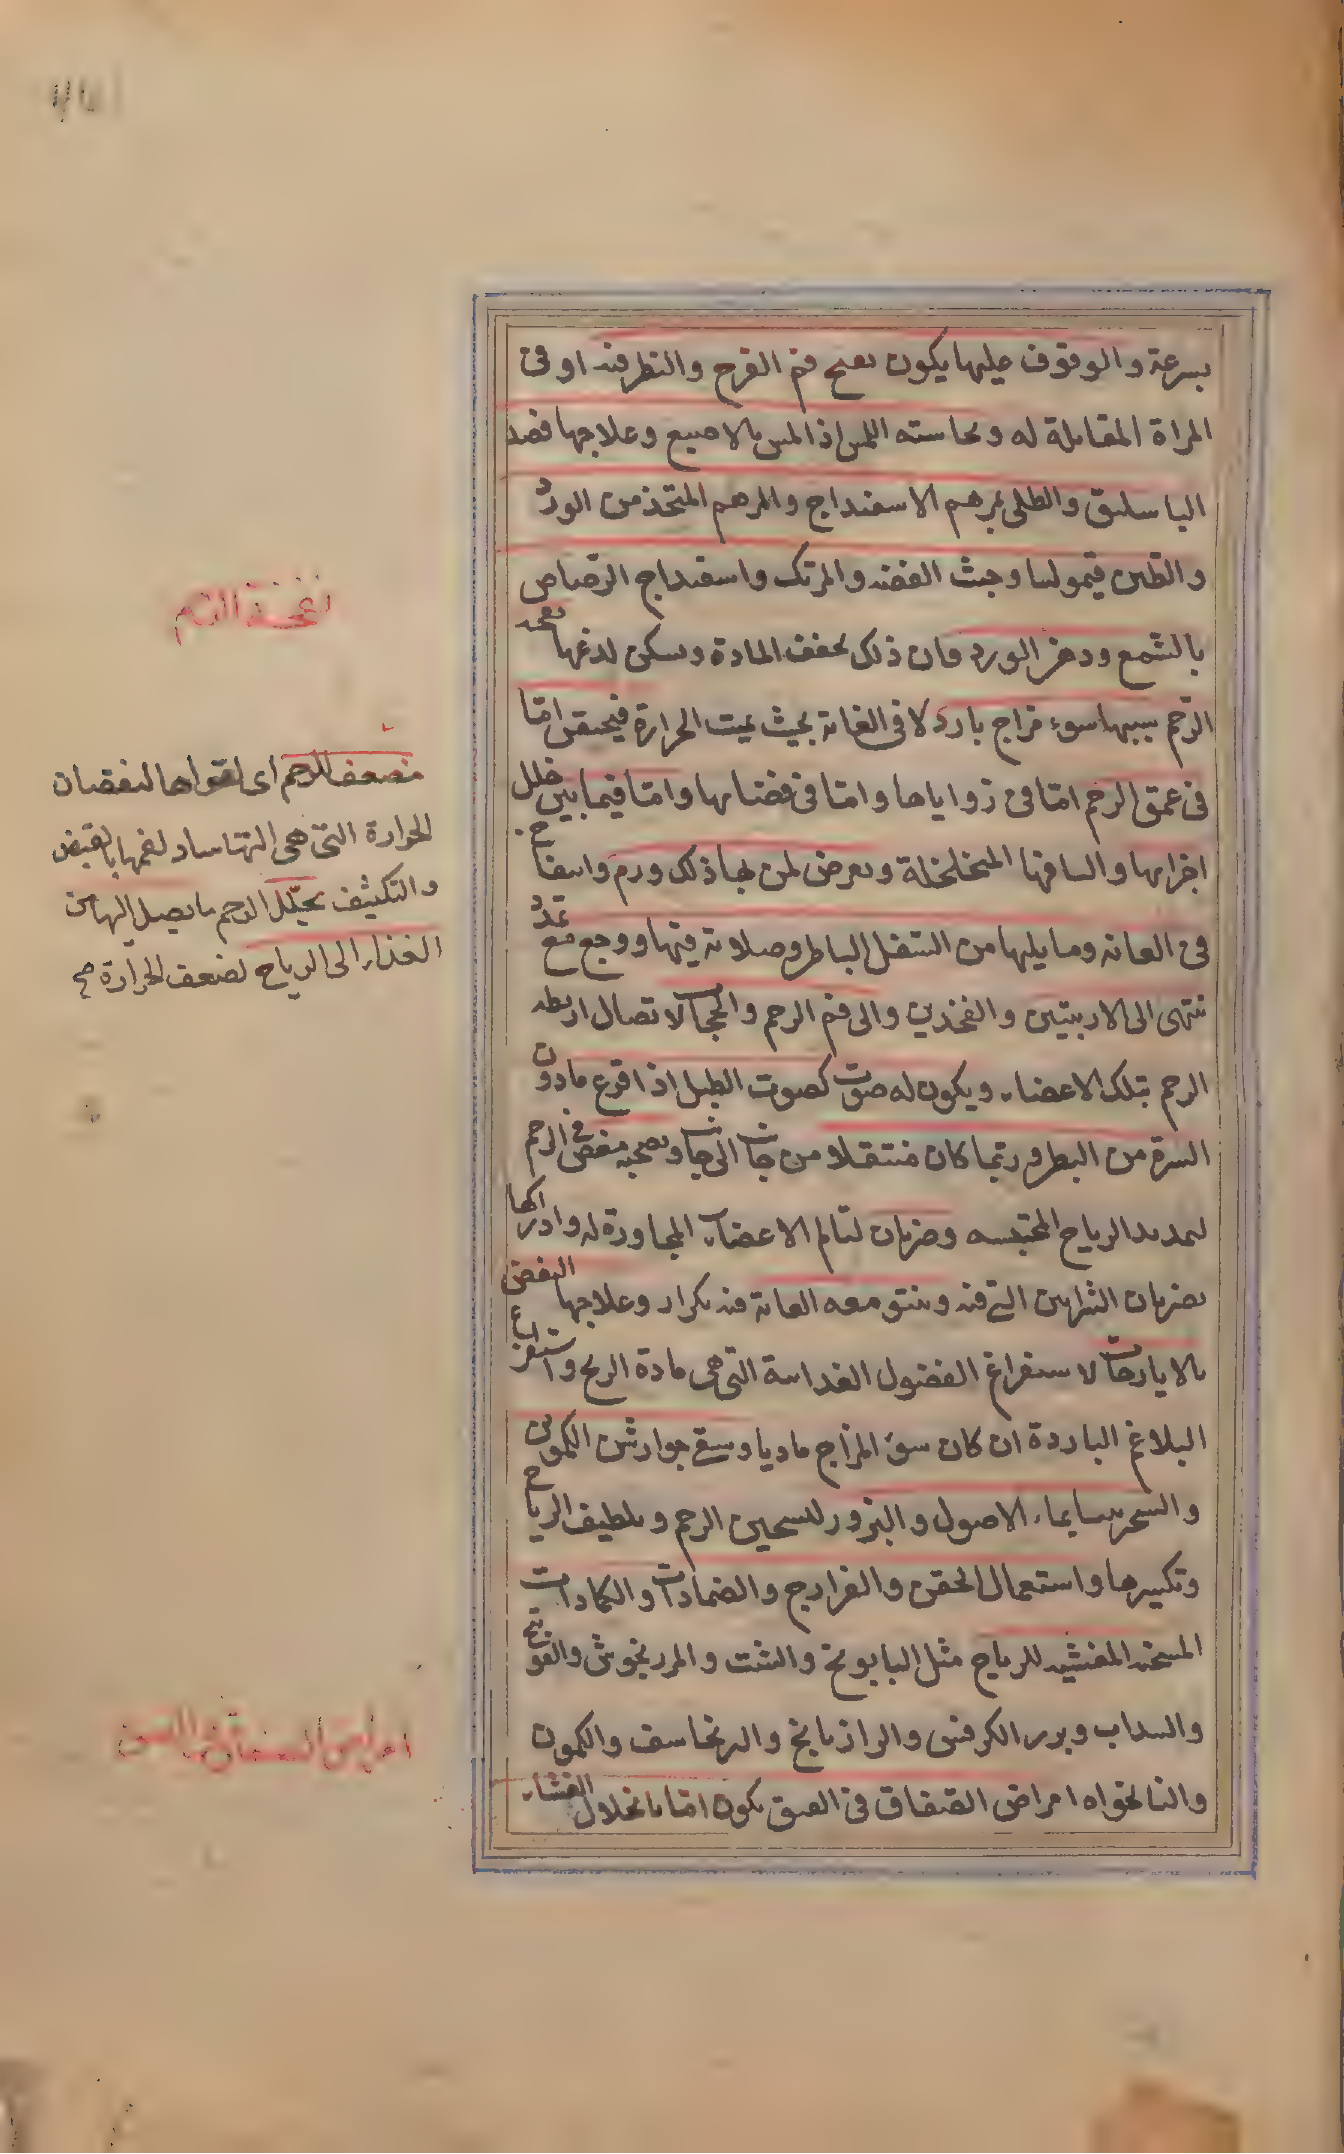 بسرعة والوقوف عليها يكون بفتح فم الفرج والنظر فيه او فى
المراة المقابلة له وبحاسته اللمس اذا لمس بالاصبع وعلاجها فصد
الباسليق والطلى بمرهم الاسفنداج والمرهم المتخذ من الورد
والطين قيموليا وخبث الفضه والمرتك واسفيداج الرصاص
بالشمع ودهن الورد فان ذلك يجفف المادة ويسكن لدغها نفخة
الرحم سببها سوء مزاج بارد لا فى الغاية بحيث يميت الحرارة فيحتقن اما
فى عمق الرحم اما فى زواياها واما فى فضايها واما فيما بين خلل
اجزايها واليافها المتخلخلة ويعرض لمن بها ذلك ورم وانتفاخ
فى العانه وما يليها من اسفل البطن وصلابة فيها ووجع مع تمدد
ينتهى الى الاربيتين والفخذين والى فم الرحم والحجاب لاتصال اربطه
الرحم بتلك الاعضاء ويكون له صوت كصوت الطبل اذا قرع ما دون
السرة من البطن وربما كان منتقلا من جانب الى جانب ويصحبه مغص فى الرحم
لتمديد الرياح المحتبسه وضربان لتالم الاعضاء المجاورة له وادراكها
بضربان الشرايين التى فيه وينتو معه العانة فيه بكرار وعلاجها النفض
بالايارجات لاستفراغ الفضول الغدائية التى هى مادة الريح واستفراغ
البلاغم الباردة ان كان سوء المزاج ماديا وسقى جوارشن الكمونى
والسجرينيا بماء الاصول والبزور لتسخين الرحم وتلطيف الرياح
وتكسيرها واستعمال الحقن والفرازج والضمادات والكمادات
المسخنه المفشيه للرياح مثل البابونج والشبت والمرزنجوش والفوتنج
والسداب وبزر الكرفس والرازيانج والبرنجاسف والكمون
والنانخواه امراض الصفاق فى الفتق يكون اما بانحلال الغشاء
نفخة الرحم
فضعف الرحم اى لقواها لنقصان
الحرارة التى هى التها ساد لفمها بالقبض
والتكثيف يحيل الرحم ما يصل اليها من
الغذاء الى الرياح لضعف الحرارة صح
امراض الصفاق فى الفتق